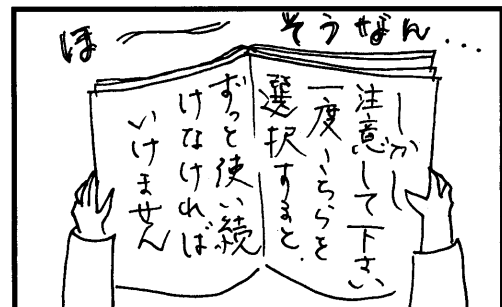 ほ〜
そうなん...
しかし
注意して下さい
一度こちらを
選択すると、
ずっと使い続
けなければ
いけません